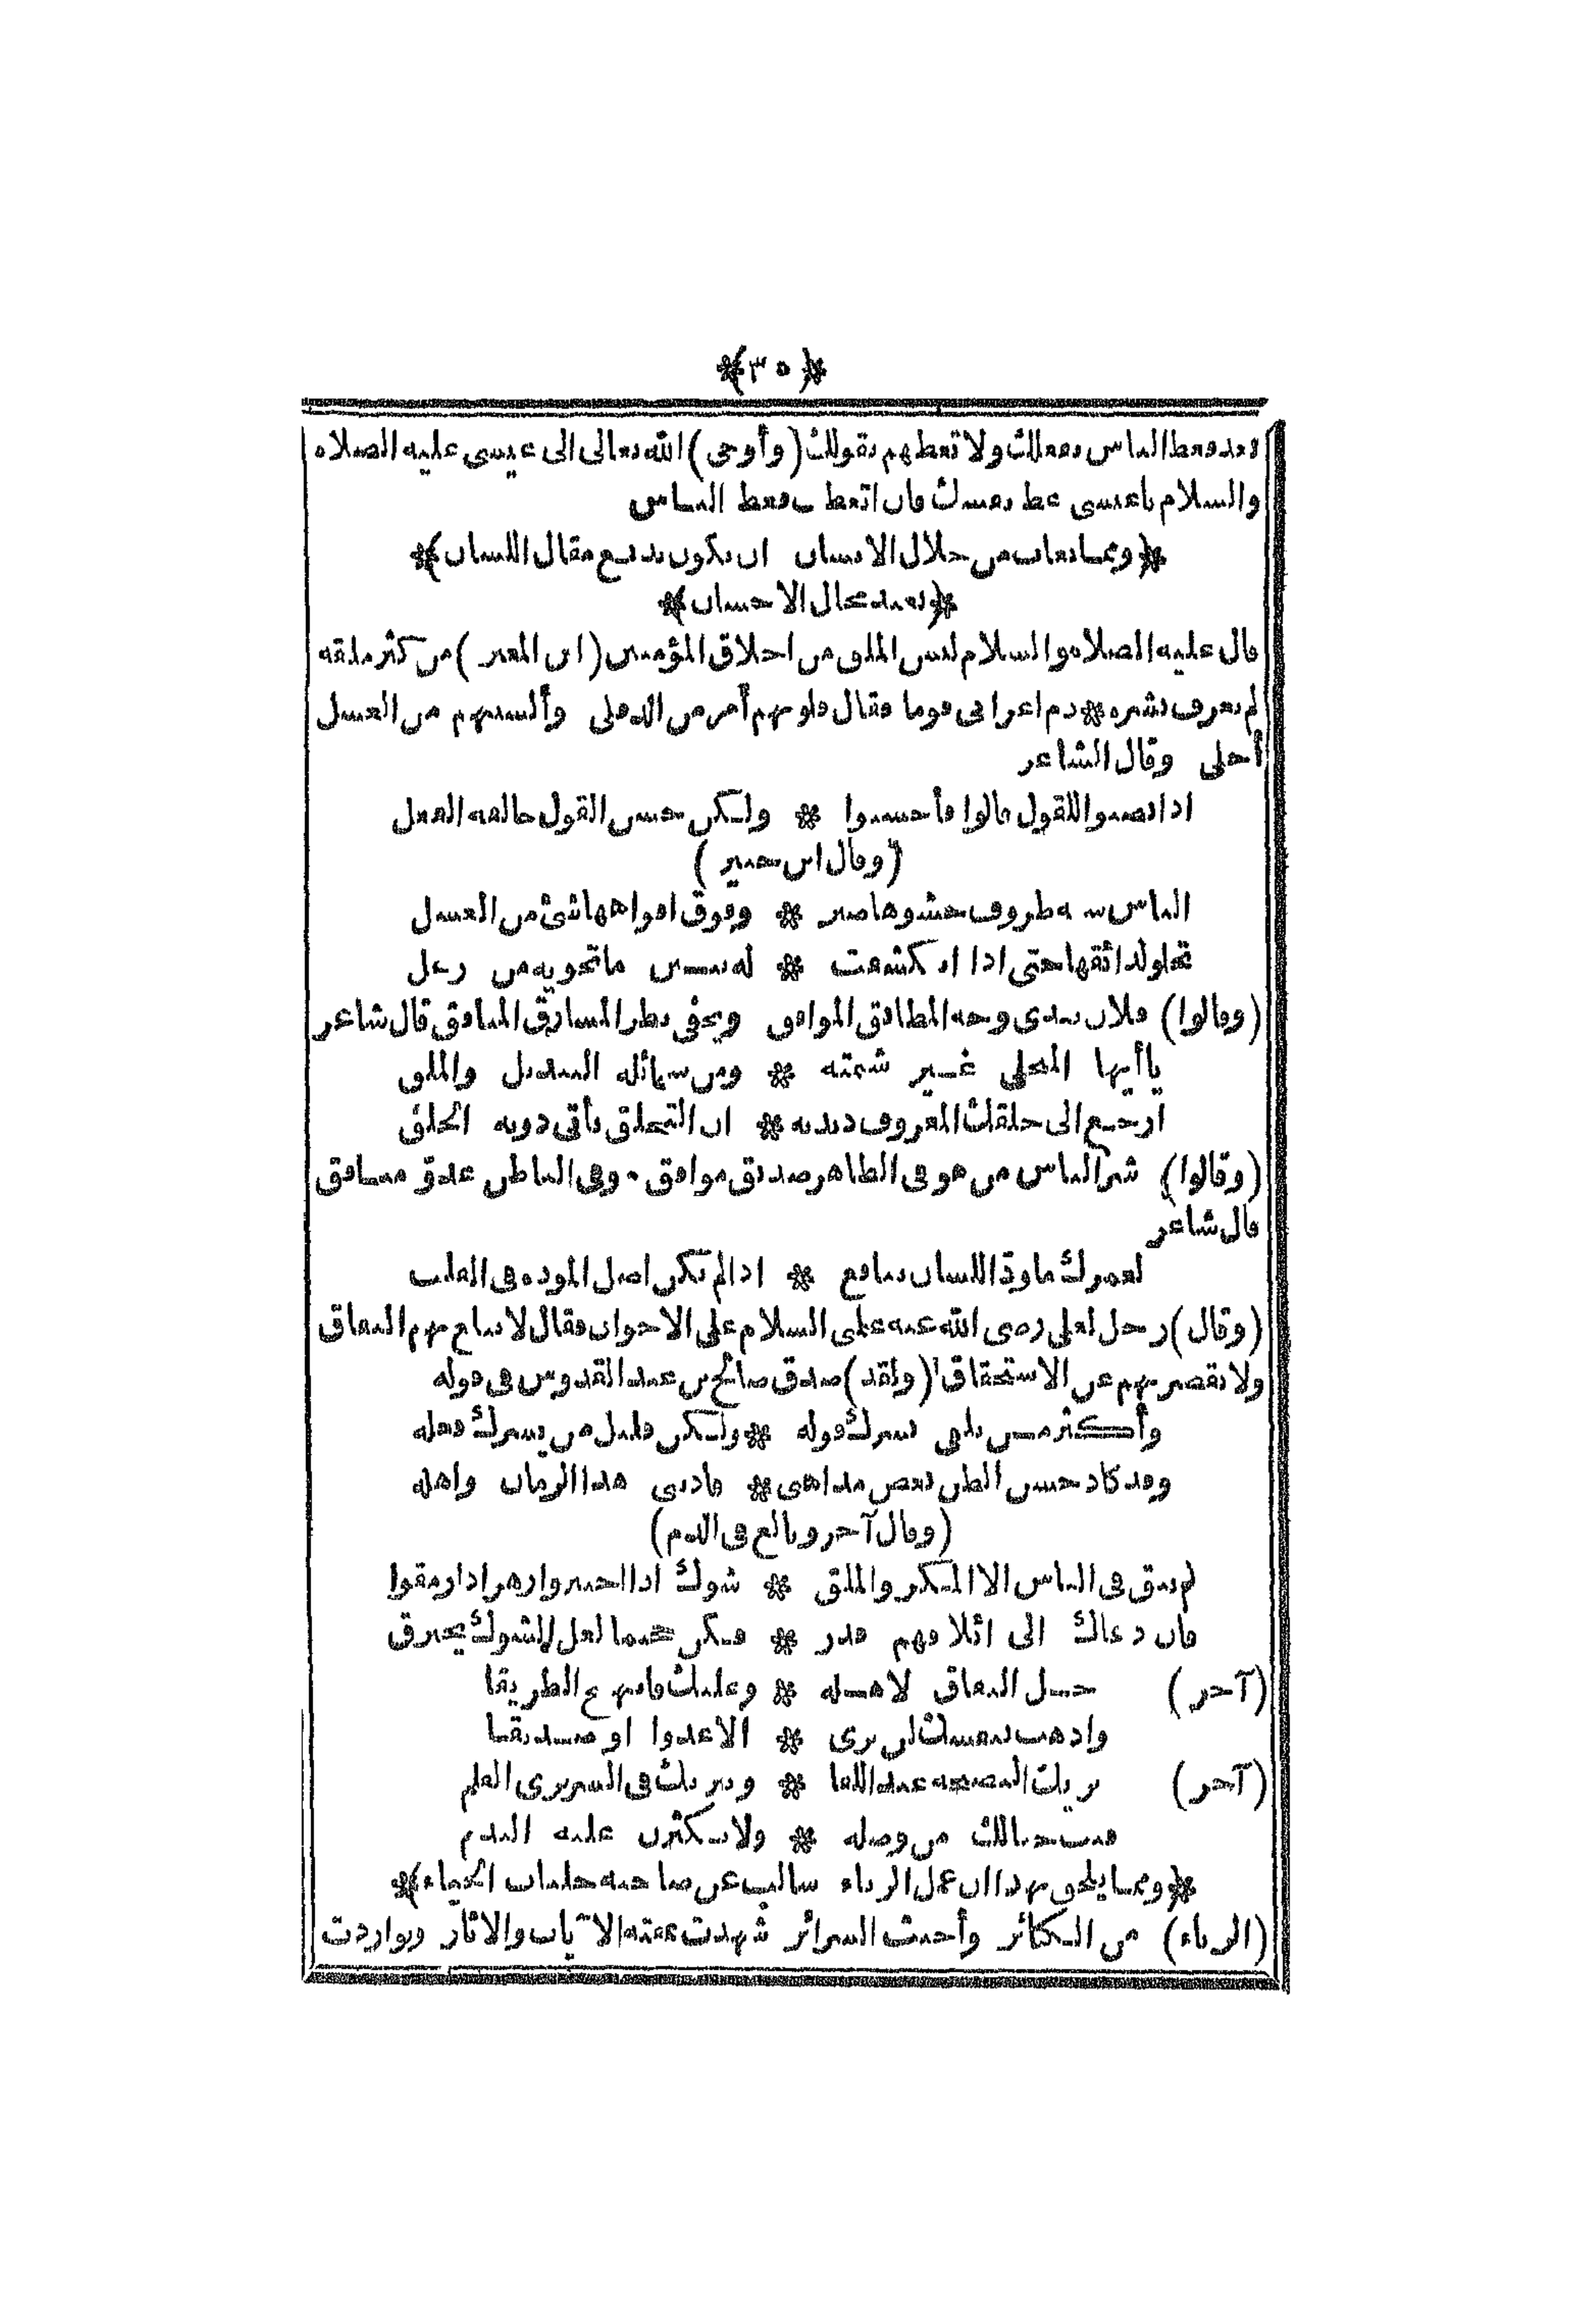 ﴿٣٥﴾
بعد فعظ الناس بفعلك ولا تعظهم بقولك (وأوحى) الله تعالى الى عيسى عليه الصلاة
والسلام ياعيسى عظ نفسك فان اتعظت فعظ الناس
﴿ومما يعاب من خلال الانسان ان يكون بديع مقال اللسان﴾
﴿بعيد مجال الاحسان﴾
قال عليه الصلاة والسلام ليس الملق من اخلاق المؤمنين (ابن المعتز) من كثر ملقه
لم يعرف بشره * ذم اعرابى قوما فقال قلوبهم أمر من الدفلى وألسنتهم من العسل
أحلى وقال الشاعر
اذا نصبوا للقول قالوا فأحسنوا * ولكن حسن القول خالفه الفعل
(وقال ابن جبير)
الناس ظروف حشوها صبر * وفوق افواهها شئ من العسل
تحلو لذائقها حتى اذا انكشفت * له تبين ما تحويه من دغل
(وقالوا) فلان يبدى وجه المطابق الموافق ويخفى نظر المسارق المنافق قال شاعر
يا أيها المتحلى غير شيمته * ومن سمائله التبديل والملق
ارجع الى خلقك المعروف ديدنه * ان التخلق يأتى دونه الخلق
(وقالوا) شر الناس من هو فى الظاهر صديق موافق وفى الباطن عدو منافق
قال شاعر
لعمرك ما ود اللسان بنافع * اذا لم يكن اصل المودة فى القلب
(وقال) رجل لعلى رضى الله عنه على السلام على الاخوان فقال لا تبلغ بهم النفاق
ولا تقصر بهم عن الاستحقاق (ولقد) صدق صالح بن عبد القدوس فى قوله
وأكثر من تلقى يسرك قوله * ولكن قليل من يسرك فعله
وقد كاد حسن الظن بعض مذاهبى * فادبنى هذا الزمان واهله
(وقال آخر وبالغ فى الذم)
لم يبق فى الناس الا المكر والملق * شوك اذا اختبروا زهر اذا رمقوا
فان دعاك الى ائتلافهم قدر * فكن جحيما لعل الشوك يحترق
(آخر) خل النفاق لاهله * وعليك فانتهج الطريقا
واذهب بنفسك ان ترى * الا عدوا او صديقا
(آخر) يريك النصيحة عند اللقا * ويبريك فى السر برى القلم
فبت حبالك من وصله * ولا تكثرن عليه الندم
﴿ومما يلحق بهذا ان عمل الرياء سالب عن صاحبه جلباب الحياء﴾
(الرياء) من الكبائر وأخبث السرائر شهدت بمقته الآيات والآثار وتواردت